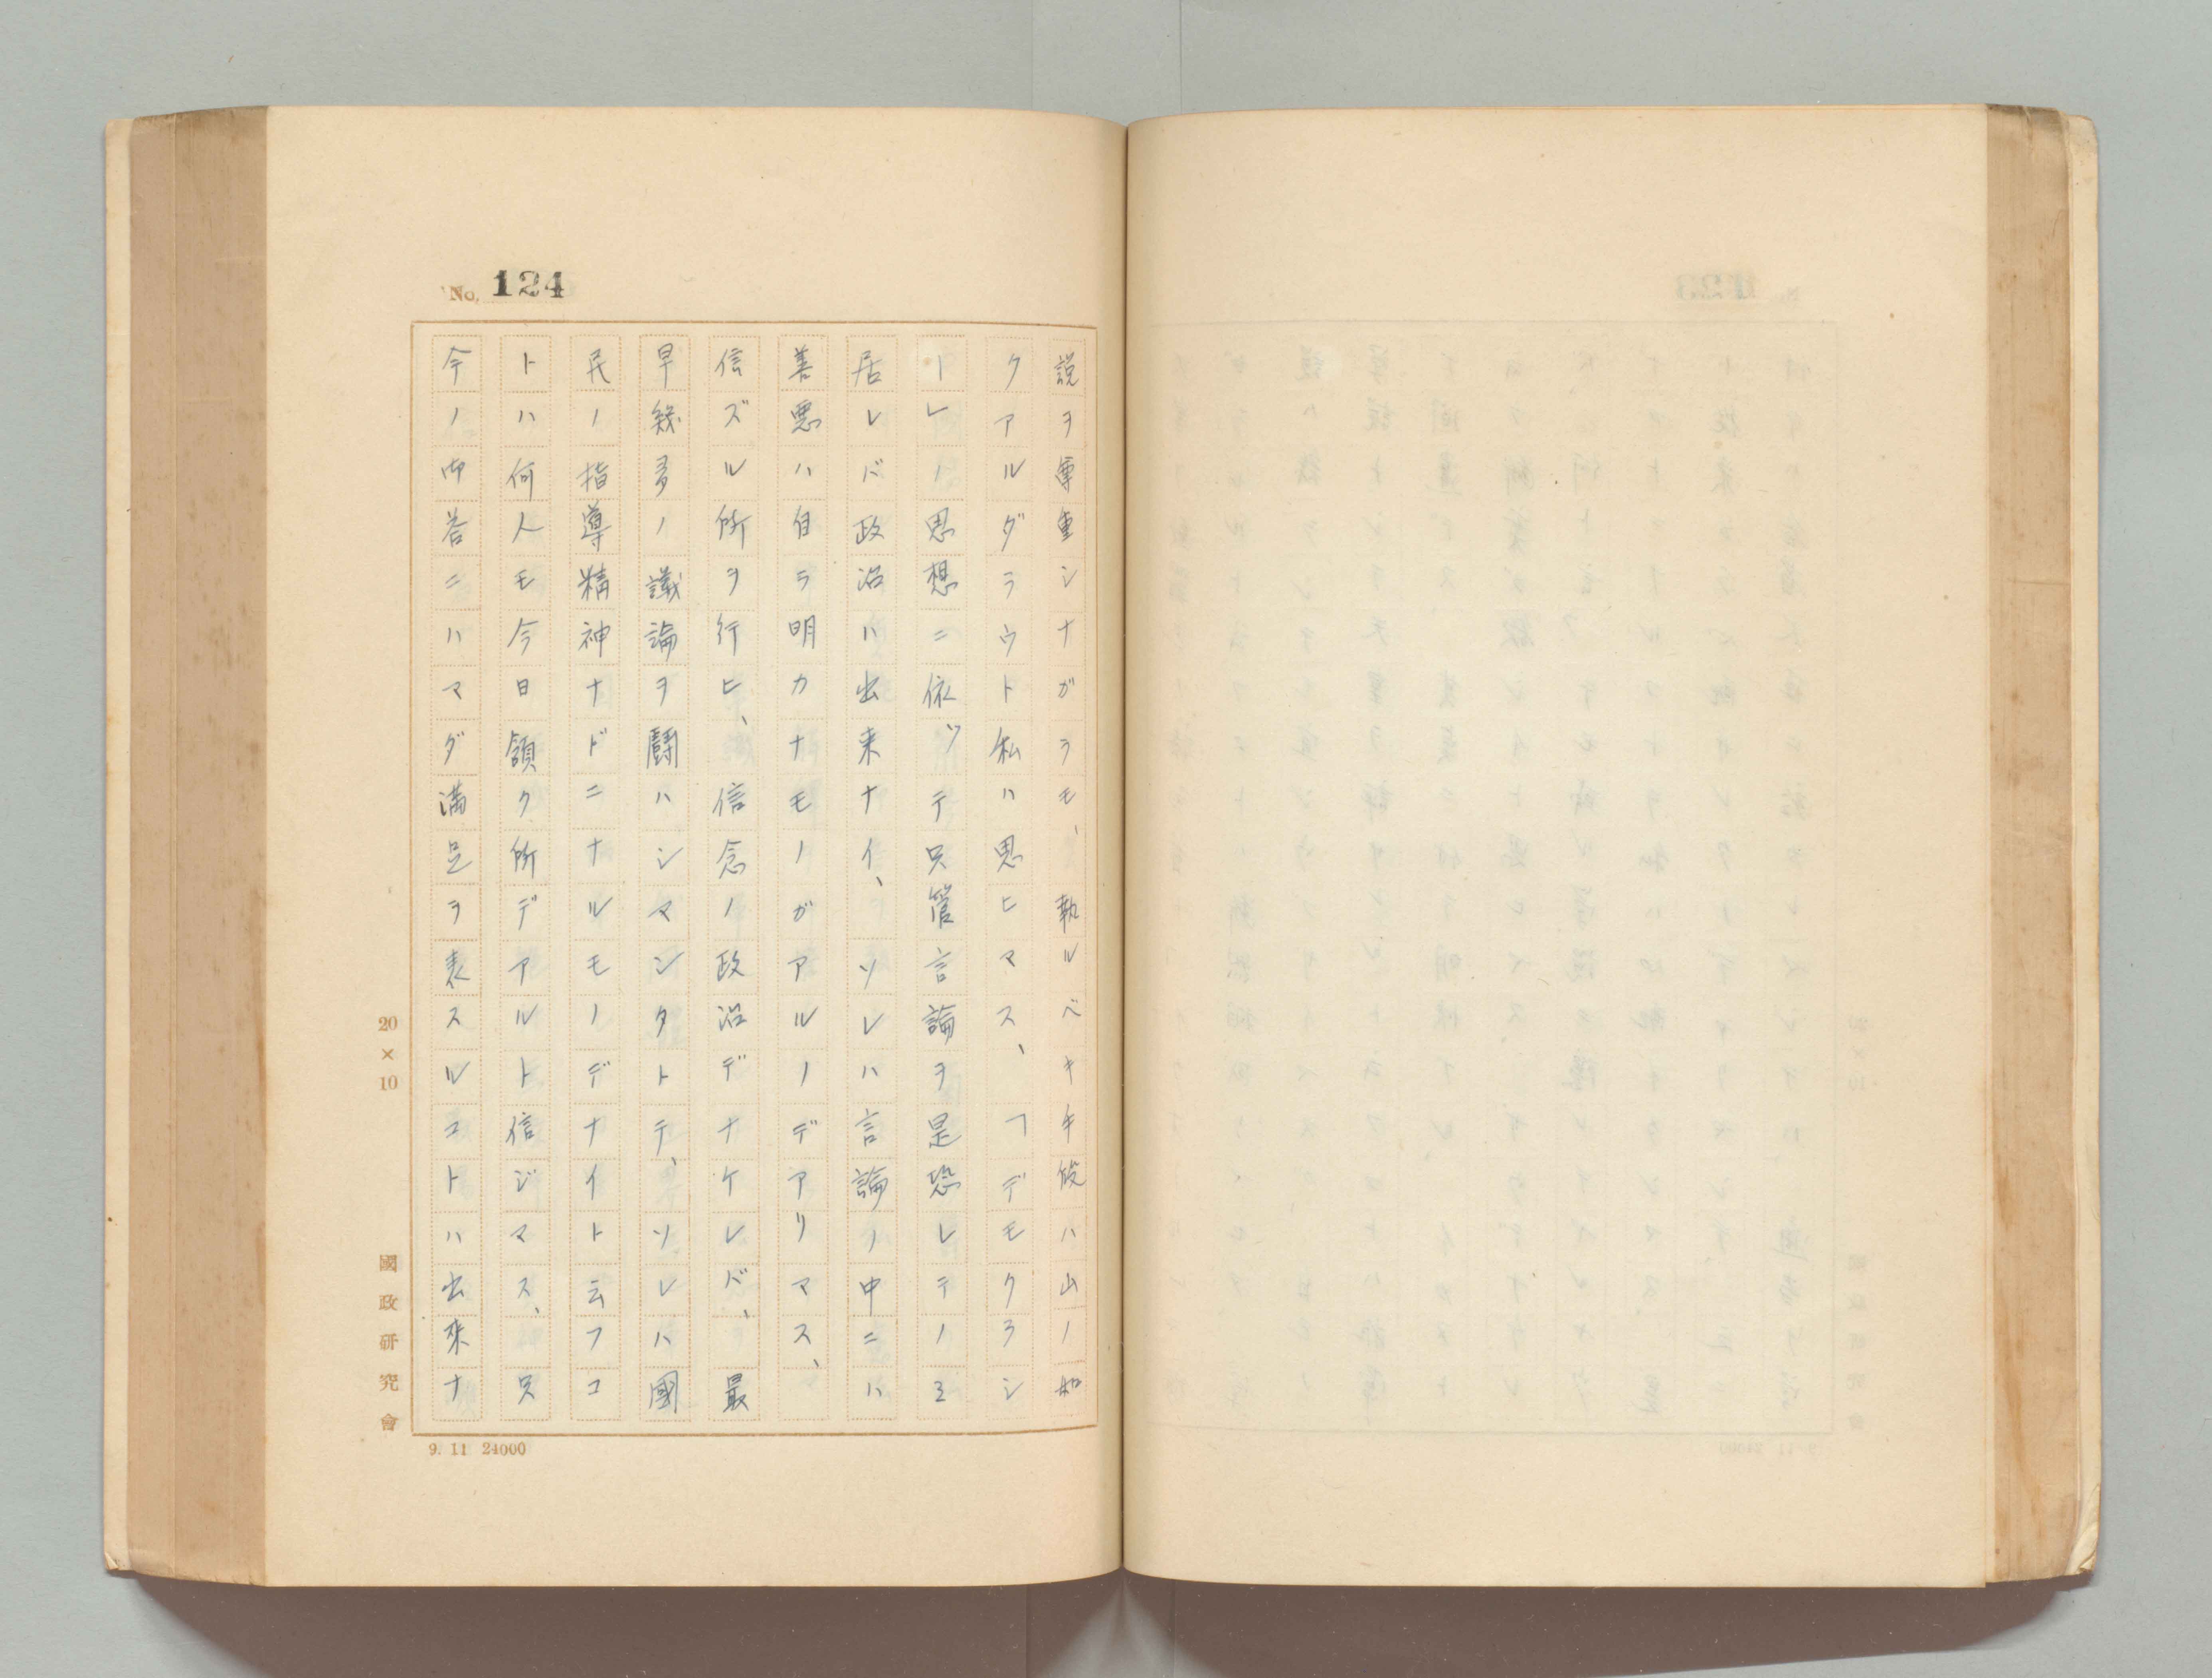 No. 124
説ヲ尊重シナガラモ、執ルベキ手段ハ山ノ如
クアルダラウト私ハ思ヒマス、「デモクラシ
ー」ノ思想ニ依ッテ只管言論ヲ是恐レテノミ
居レバ政治ハ出来ナイ、ソレハ言論ノ中ニハ
善悪ハ自ラ明カナモノガアルノデアリマス、
信ズル所ヲ行ヒ、信念ノ政治デナケレバ、最
早幾多ノ議論ヲ闘ハシマシタトテ、ソレハ國
民ノ指導精神ナドニナルモノデナイト云フコ
トハ何人モ今日頷ク所デアルト信ジマス、只
今ノ御答ニハマダ満足ヲ表スルコトハ出来ナ
20×10
國政研究會
9. 11 24000